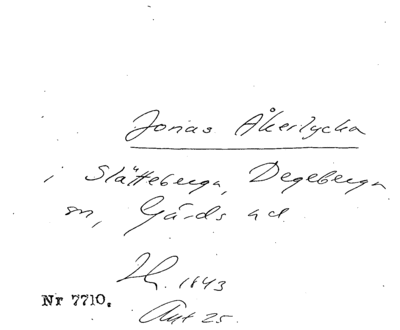 Jonas Åkerlycka
i Slätteberga, Degeberga
sn, Gärds hd.
Ih. 1843
Nr 7710.
Aut 25.